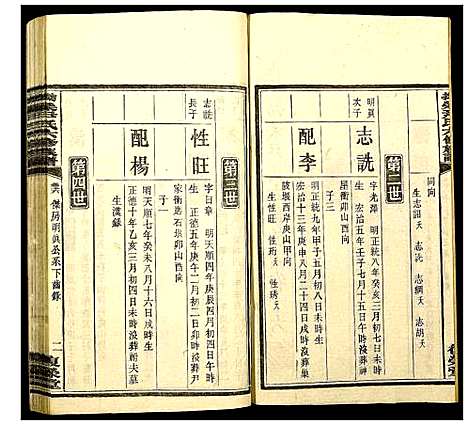 同向
生志詔夭 志詵 志綱夭 志胡夭
第二世
明真
次子
志詵
字光澤 明正統八年癸亥三月初七日子時
生 宏治五年壬子七月十五日午時沒葬
屋衝卯山酉向
子三
配李
明正統九年甲子五月初八日未時
生 宏治十三年庚申八月二十四日未時沒葬巢
陂堰西岸庚山甲向
生性旺 性珩夭 性琇夭
第三世
志詵
長子
性旺
字日章 明天順四年庚辰四月初三日丑時
生 正德五年庚午二月初二日卯時沒葬尹
家衝造石塅卯山酉向
子一
配楊
明天順七年癸未八月十六日戌時生
正德十年乙亥三月初四日未時沒葬附夫墓
生漢錄
第四世
卷六 傑房明真公系下齒錄
二